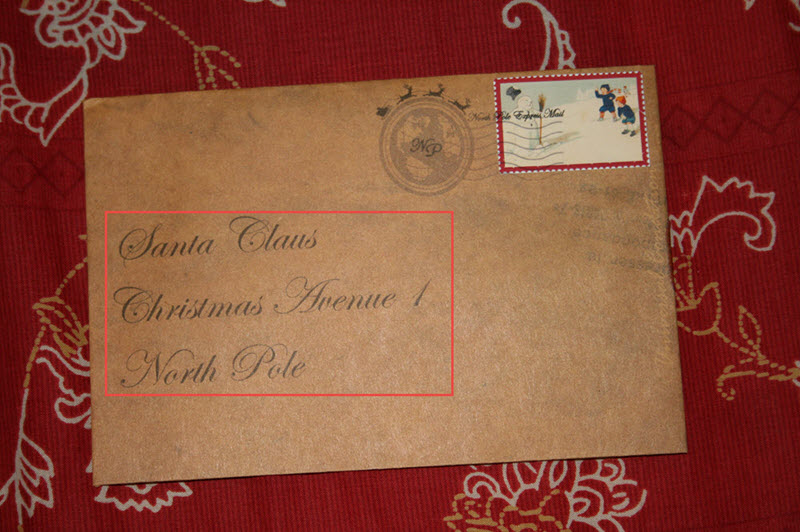 NP
North Pole Express Mail
Santa Claus
Christmas Avenue 1
North Pole